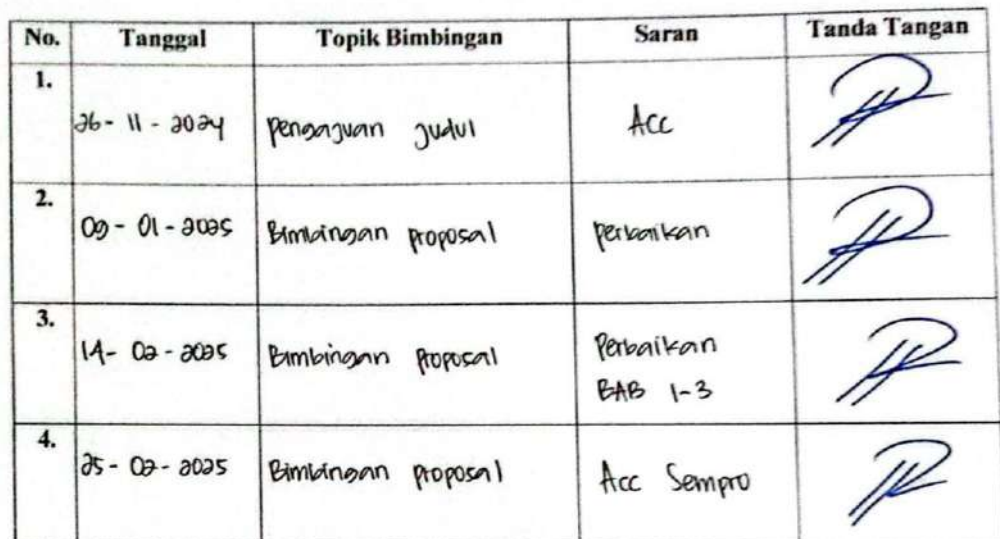 No. Tanggal Topik Bimbingan Saran Tanda Tangan
1. 26 - 11 - 2024 pengajuan judul Acc
2. 09 - 01 - 2025 Bimbingan proposal perbaikan
3. 14 - 02 - 2025 Bimbingan proposal Perbaikan
BAB 1-3
4. 25 - 02 - 2025 Bimbingan proposal Acc Sempro